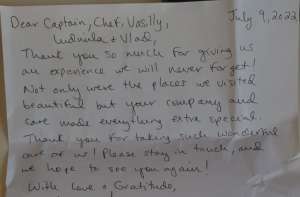 Dear Captain, Chef, Vasilly, July 9, 2022
Ludmila + Vlad,
Thank you so much for giving us
an experience we will never forget!
Not only were the places we visited
beautiful but your company and
care made everything extra special.
Thank you for taking such wonderful
care of us! Please stay in touch, and
we hope to see you again!
With Love & Gratitude,